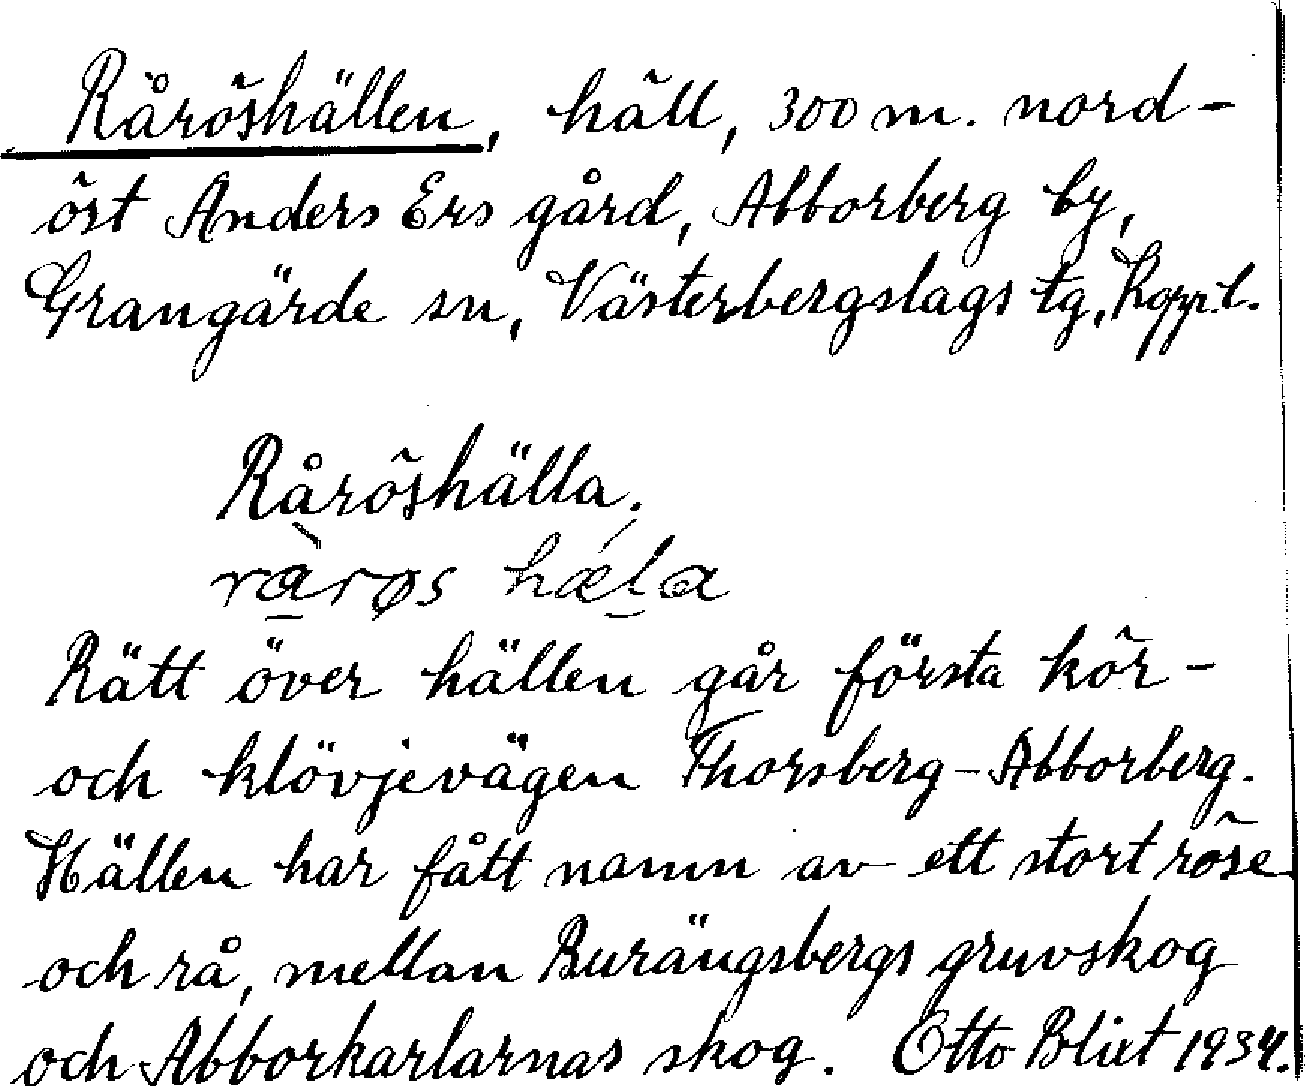 Råröshällen, häll, 300 m. nord-
öst Anders Ers gård, Abborberg by,
Grangärde sn, Västerbergslags tg, Koppl.
Råröshälla.
ràrøs hǽla
Rätt över hällen går första kör-
och klövjevägen Thorsberg-Abborberg.
Hällen har fått namn av ett stort röse
och rå, mellan Burängsbergs gruvskog
och Abborkarlarnas skog. Otto Blixt 1934.